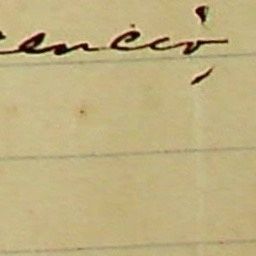 cenció,